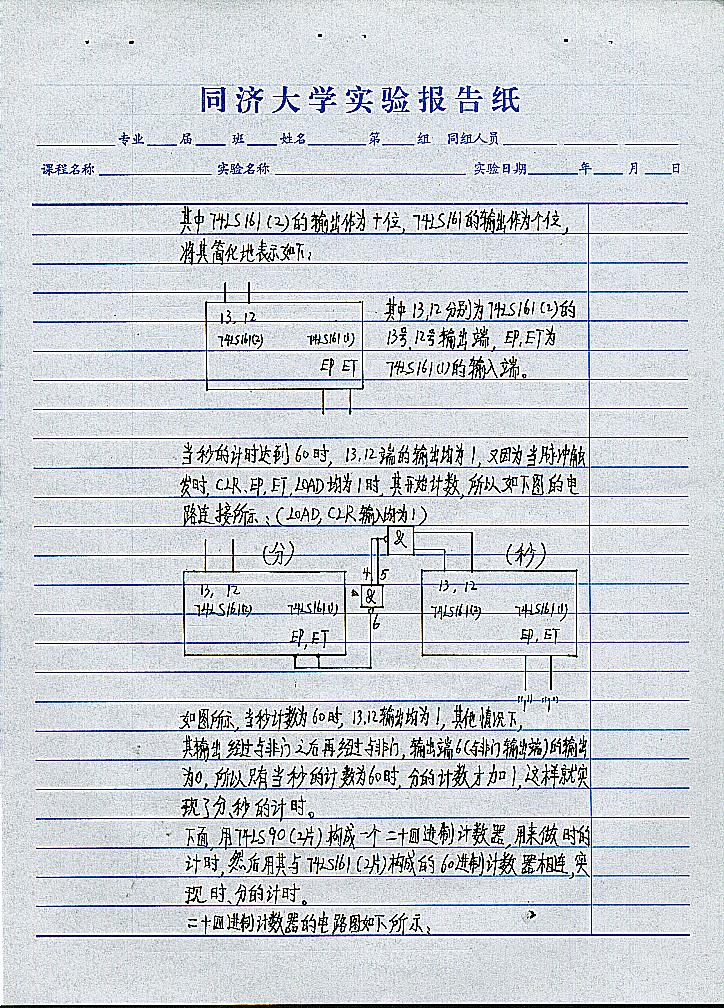 同济大学实验报告纸
专业 届 班 姓名 第 组 同组人员
课程名称 实验名称 实验日期 年 月 日
其中74LS161(2)的输出作为十位，74LS161的输出作为个位，
将其简化地表示如下：
13, 12
74LS161(2) 74LS161(1)
EP ET
其中13,12分别为74LS161(2)的
13号,12号输出端，EP,ET为
74LS161(1)的输入端。
当秒的计时达到60时，13,12端的输出均为1，又因为当脉冲触
发时，CLR、EP、ET、LOAD均为1时，其开始计数，所以如下图的电
路连接所示：(LOAD, CLR输入均为1)
(分) & (秒)
4 5
13, 12 & 13, 12
74LS161(2) 74LS161(1) 74LS161(2) 74LS161(1)
6
EP, ET EP, ET
"1" "1"
如图所示，当秒计数为60时，13,12输出均为1，其他情况下，
其输出经过与非门之后再经过与非门，输出端6(与非门输出端)的输出
为0，所以只有当秒的计数为60时，分的计数才加1，这样就实
现了分、秒的计时。
下面，用74LS90(2片)构成一个二十四进制计数器，用来做时的
计时，然后用其与74LS161(2片)构成的60进制计数器相连，实
现时、分的计时。
二十四进制计数器的电路图如下所示：